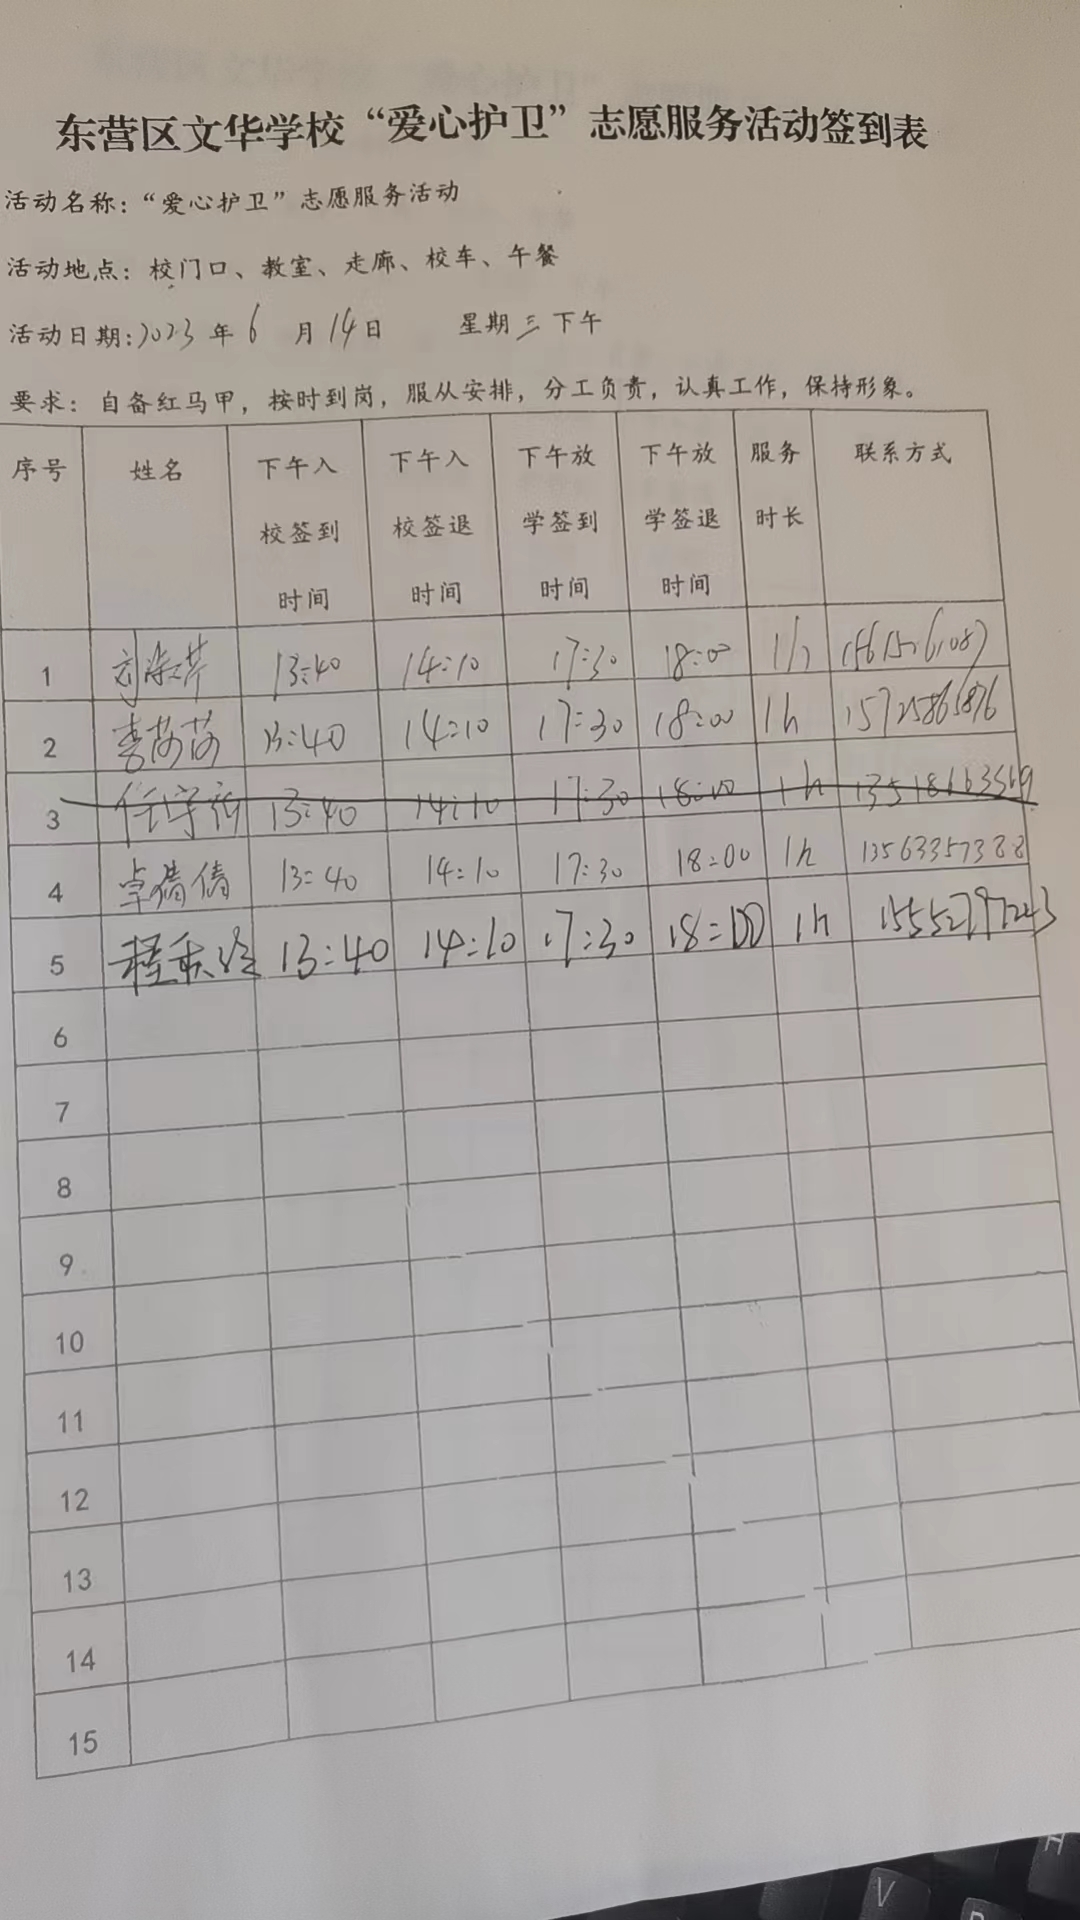 东营区文华学校“爱心护卫”志愿服务活动签到表
活动名称：“爱心护卫”志愿服务活动
活动地点：校门口、教室、走廊、校车、午餐
活动日期:2023年6月14日 星期三下午
要求：自备红马甲，按时到岗，服从安排，分工负责，认真工作，保持形象。
序号 姓名 下午入校签到时间 下午入校签退时间 下午放学签到时间 下午放学签退时间 服务时长 联系方式
1 13:40 14:10 17:30 18:00 1h
2 李茹茹 13:40 14:10 17:30 18:00 1h 15725865876
3 13:40 14:10 17:30 18:00 1h
4 卓倩倩 13:40 14:10 17:30 18:00 1h 13563357388
5 13:40 14:10 17:30 18:00 1h 15552797243
6
7
8
9
10
11
12
13
14
15
H
V